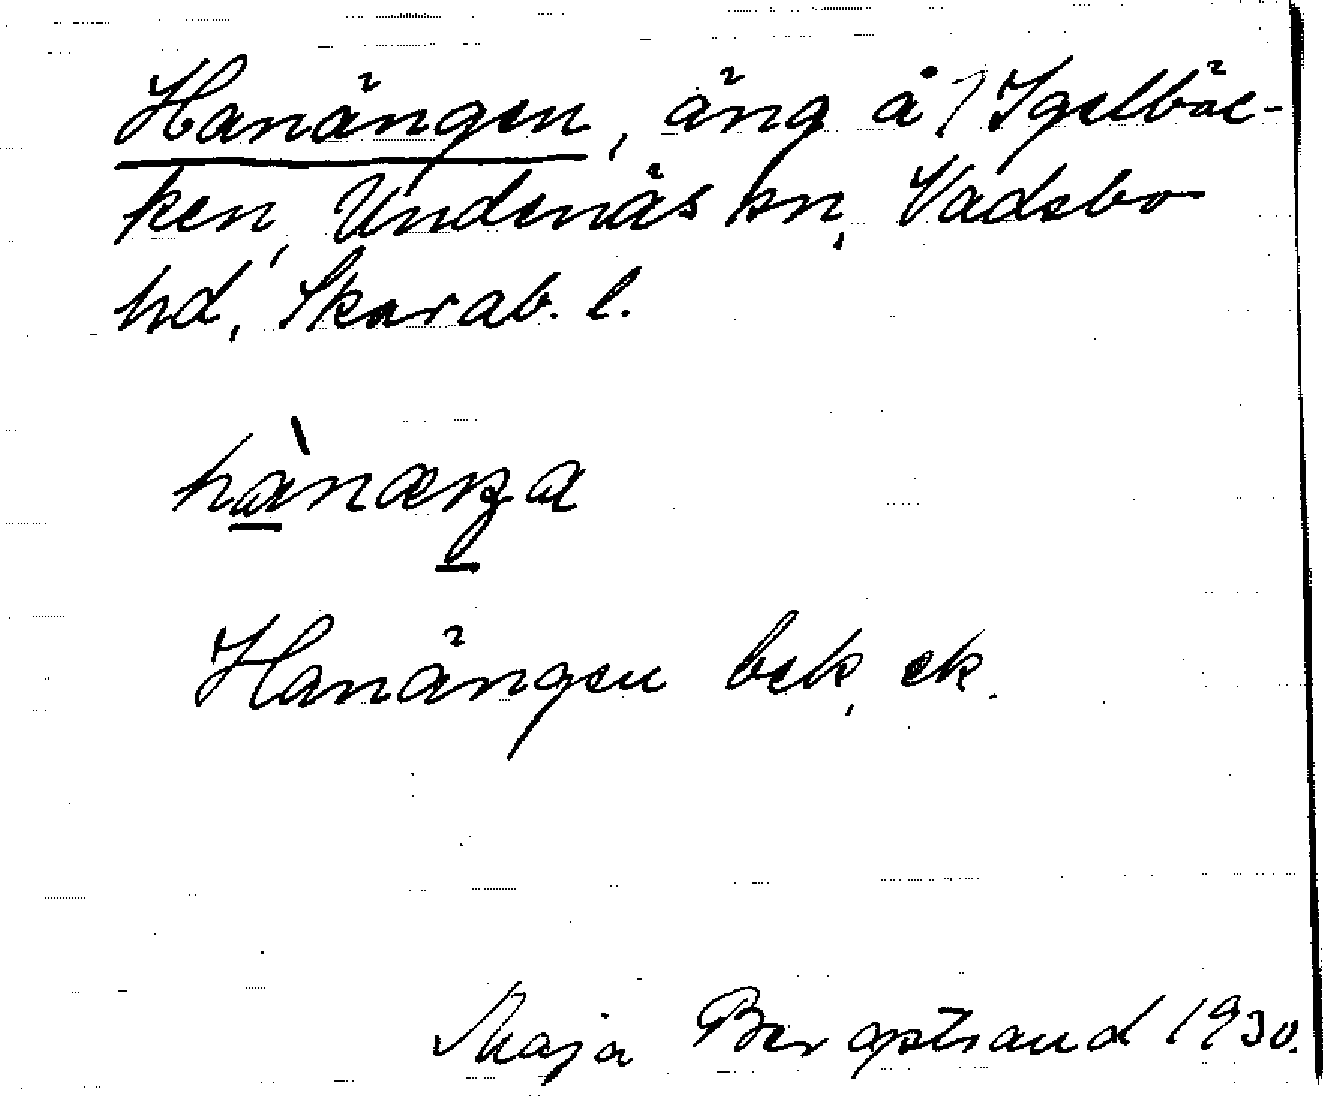 Hanängen, äng å 7 Igelbäc-
ken, Undenäs sn, Vadsbo
hd, Skarab. l.
hànæŋa
Hanängen bek, ek.
Maja Bergstrand 1930.